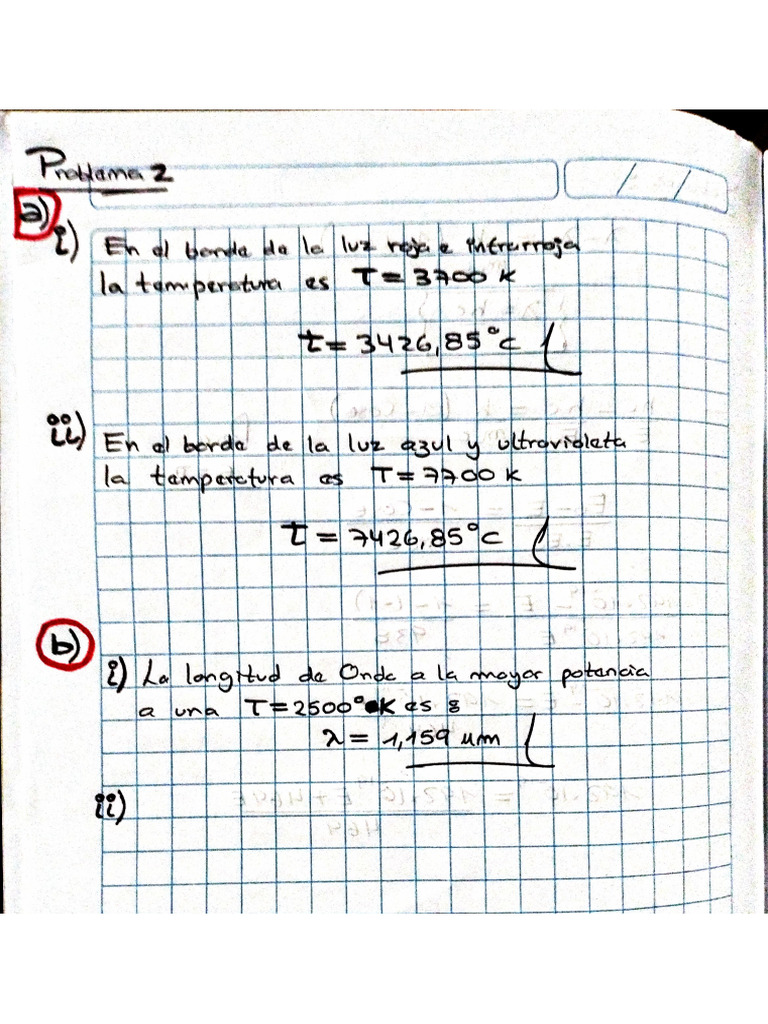 Problema 2
a)
i) En el borde de la luz roja e infrarroja
la temperatura es T = 3700 K
t = 3426,85°C
ii) En el borde de la luz azul y ultravioleta
la temperatura es T = 7700 K
t = 7426,85°C
b)
i) La longitud de Onda a la mayor potencia
a una T = 2500° K es 8
λ = 1,159 um
ii)